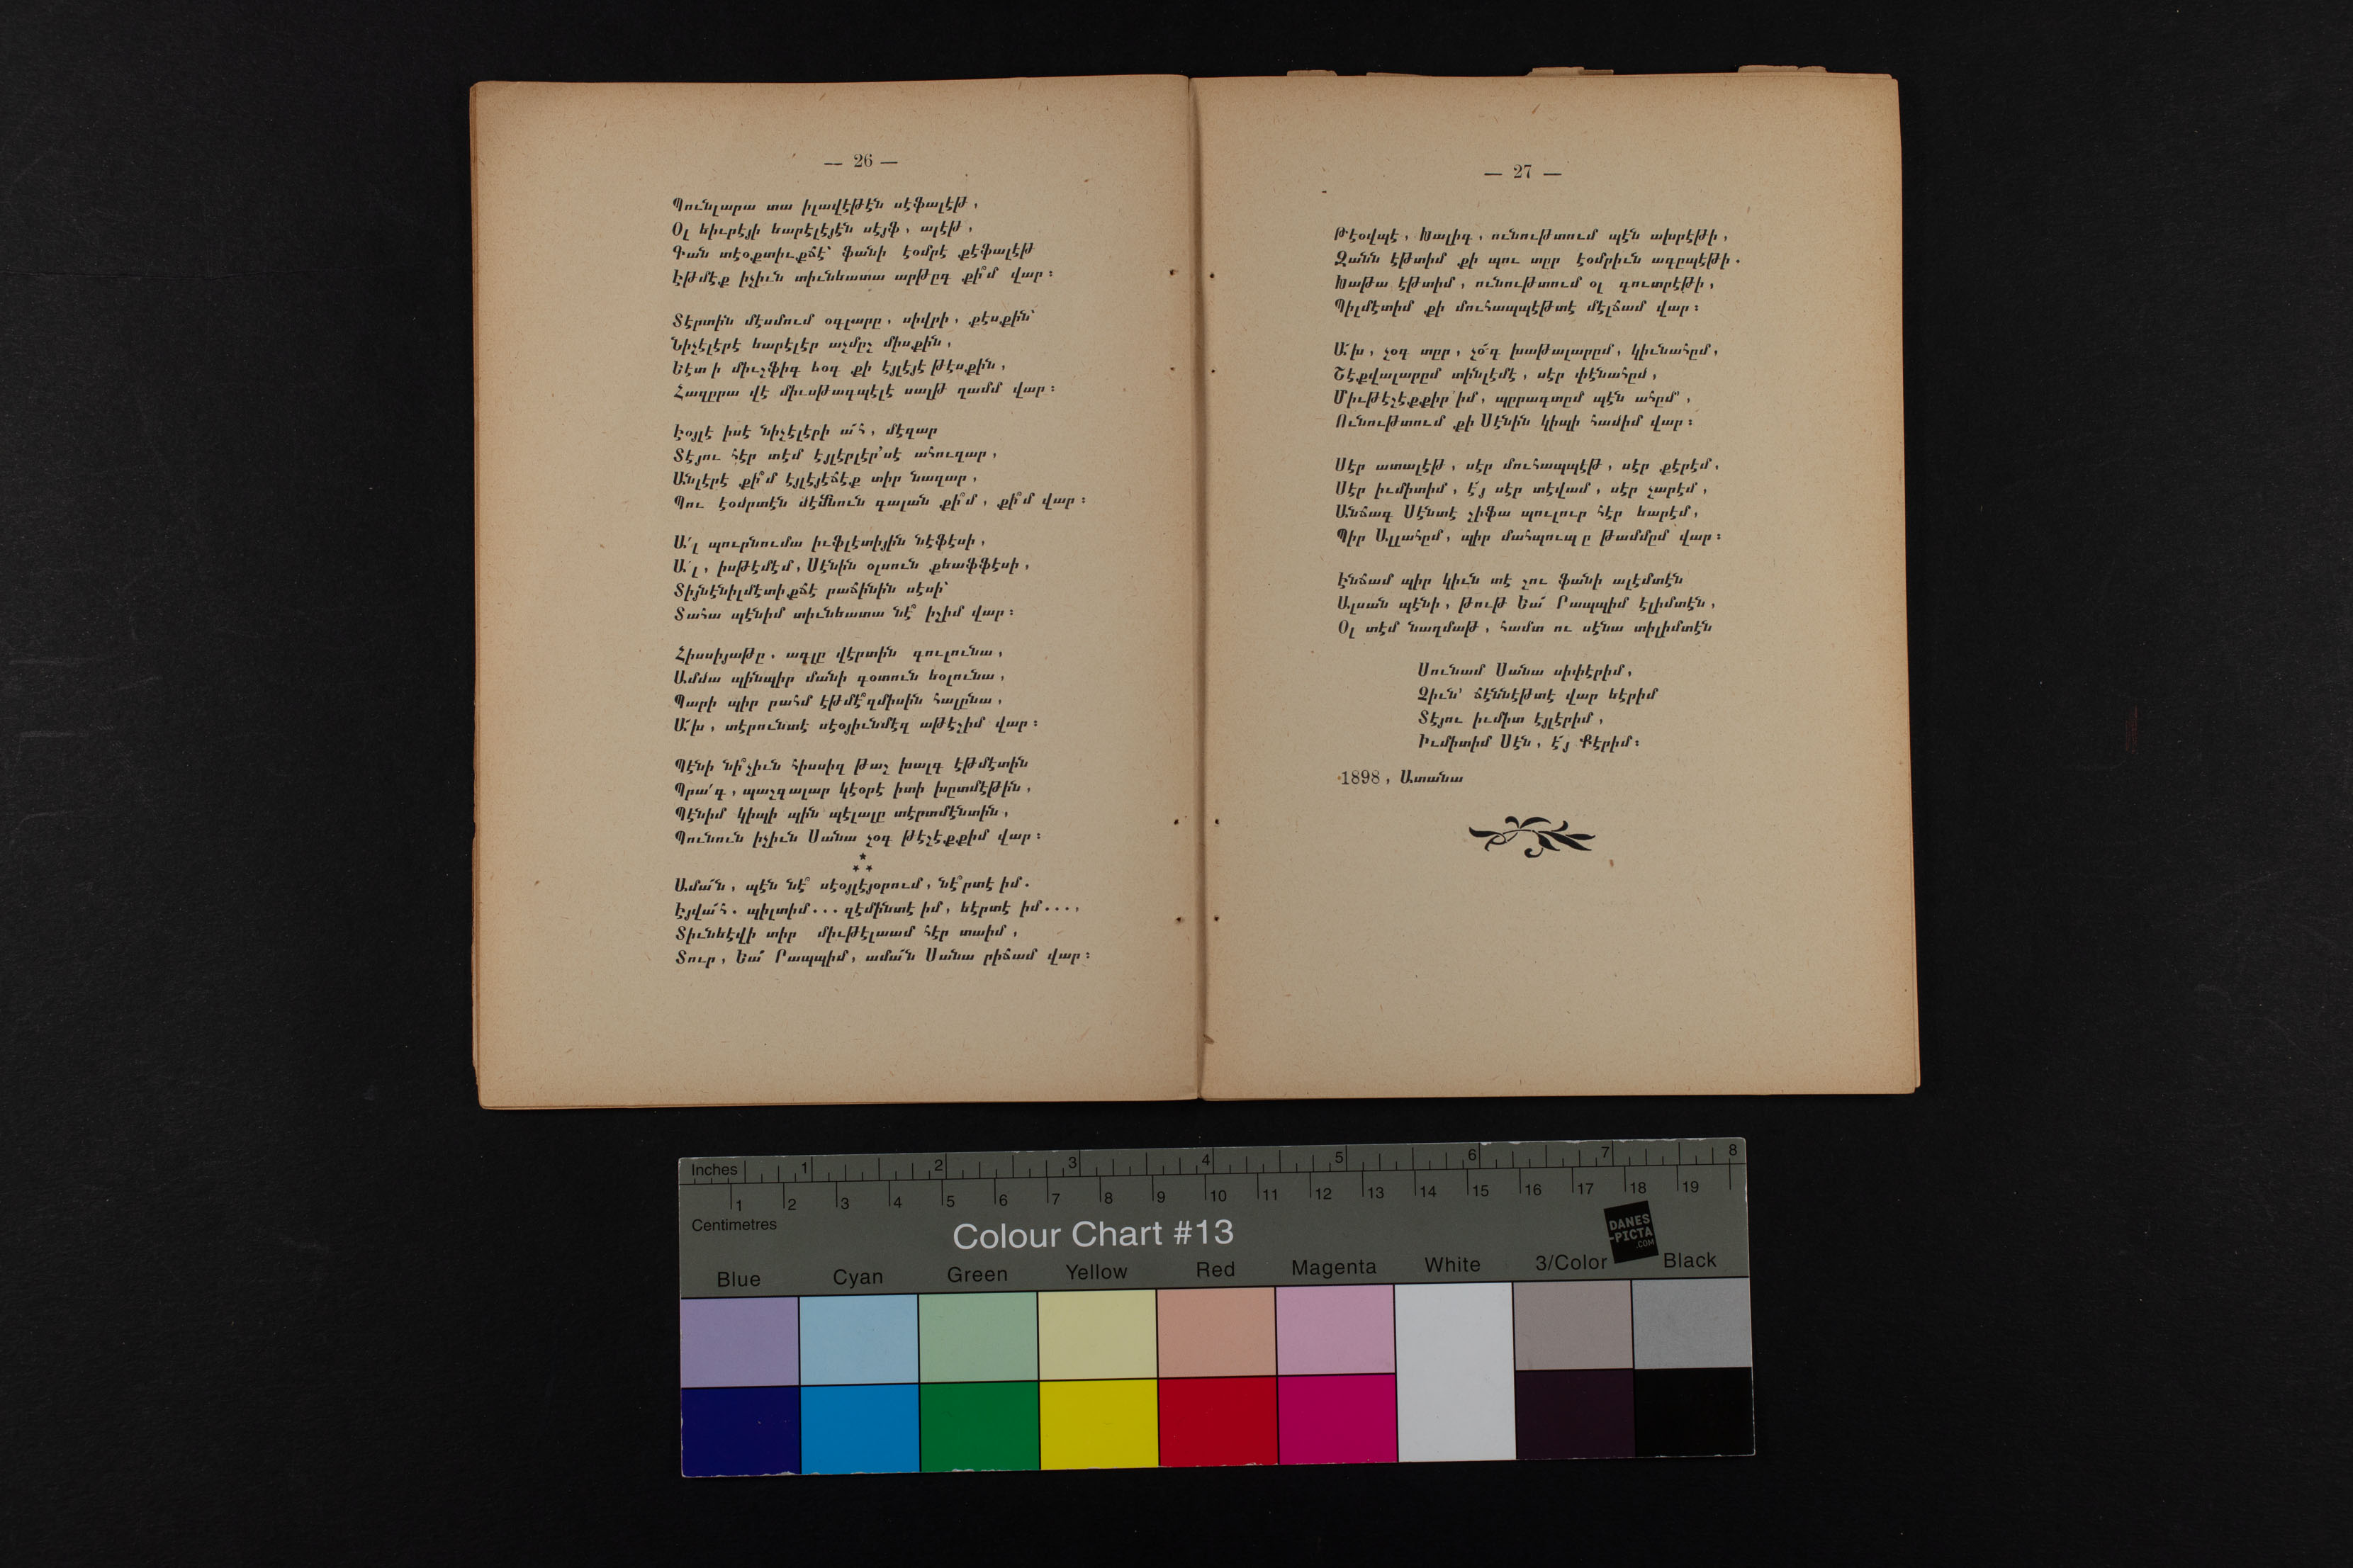 — 26 —
Պունլարա տա իլավէթէն սէֆալէթ,
Օլ եիւրէյի եարէլէյէն սէյֆ, ալէթ,
Գան տէօքտիւքճէ՝ ֆանի էօմրէ քէֆալէթ
Էթմէք իչիւն տիւնեատա արթըգ քի՞մ վար:
Տէրտին մէսմում օգլարը, սիվրի, քէսքին՝
Նիչէլէրէ եարէլէր աչմըշ միսքին,
Եէտի միւշֆիգ եօգ քի էյլէյէ թէսքին,
Հագըրա վէ միւսթագպէլէ սալթ ղամմ վար:
Էօյլէ իսէ նիչէլէրի ա՜հ, մէզար
Տէյու հէր տէմ էյլէրլէր՚սէ ահուզար,
Անլէրէ քի՞մ էյլէյէճէք տիր նազար,
Պու էօմրտէն մէմնուն գալան քի՞մ, քի՞մ վար:
Ա՛լ պուրնումա իւֆլէտիյին նէֆէսի,
Ա՛լ, իսթէմէմ, Սէնին օլսուն քեաֆֆէսի,
Տիյնէնիլմէտիքճէ րաճինին սէսի՝
Տահա պէնիմ տիւնեատա նէ՞ իչիմ վար:
Հիսսիյաթը, ագլը վէրտին գուլունա,
Ամմա պինպիր մանի գօտուն եօլունա,
Պարի պիր րահմ էթմէ՞զմիսին հալընա,
Ա՜խ, տէրունտէ սէօյիւնմէզ աթէշիմ վար:
Պէնի նի՞չիւն հիսսիզ թաշ խալգ էթմէտին
Պրա՛գ, պաշգալար կէօրէ իտի խըտմէթին,
Պէնիմ կիպի պին պէլալը տէրտմէնտին,
Պունուն իչիւն Սանա չօգ թէշէքքիմ վար:
* * *
Ամա՜ն, պէն նէ՞ սէօյլէյօրում, նէ՞րտէ իմ.
Էյվա՜հ. պիլտիմ... զէմինտէ իմ, եէրտէ իմ...,
Տիւնեէվի տիր միւթէլաամ հէր տաիմ,
Տուր, Եա՜ Րապպիմ, ամա՜ն Սանա րիճամ վար:
— 27 —
Թէօվպէ, Խալիգ, ունութտում պէն ախրէթի,
Զանն էթտիմ քի պու տըր էօմրիւն ագըպէթի.
Խաթա էթտիմ, ունութտում օլ գուտրէթի,
Պիլմէտիմ քի մուհապպէթտէ մէլճամ վար:
Ա՜խ, չօգ տըր, չօ՜գ խաթալարըմ, կիւնահըմ,
Շէքվալարըմ տինլէմէ, սէր փէնահըմ,
Միւթէշէքքիր իմ, պըրագտըմ պէն ահըմ՝,
Ունութտում քի Սէնին կիպի համիմ վար:
Սէր ատալէթ, սէր մուհապպէթ, սէր քէրէմ,
Սէր իւմիտիմ, է՜յ սէր տէվամ, սէր չարէմ,
Անճագ Սէնտէ շիֆա պուլուր հէր եարէմ,
Պիր Ալլահըմ, պիր մահպուպը թամմըմ վար:
Էնճամ պիր կիւն տէ շու ֆանի ալէմտէն
Ալսան պէնի, թութ Եա՜ Րապպիմ էլիմտէն,
Օլ տէմ նաղմաթ, համտ ու սէնա տիլիմտէն
Սունամ Սանա սիփէրիմ,
Չիւն՝ ճէննէթտէ վար եէրիմ
Տէյու իւմիտ էյլէրիմ,
Իւմիտիմ Սէն, է՜յ Քէրիմ:
1898, Ատանա
Inches 1 2 3 4 5 6 7 8
1 2 3 4 5 6 7 8 9 10 11 12 13 14 15 16 17 18 19
Centimetres
Colour Chart #13
DANES
-PICTA
.COM
Blue Cyan Green Yellow Red Magenta White 3/Color Black